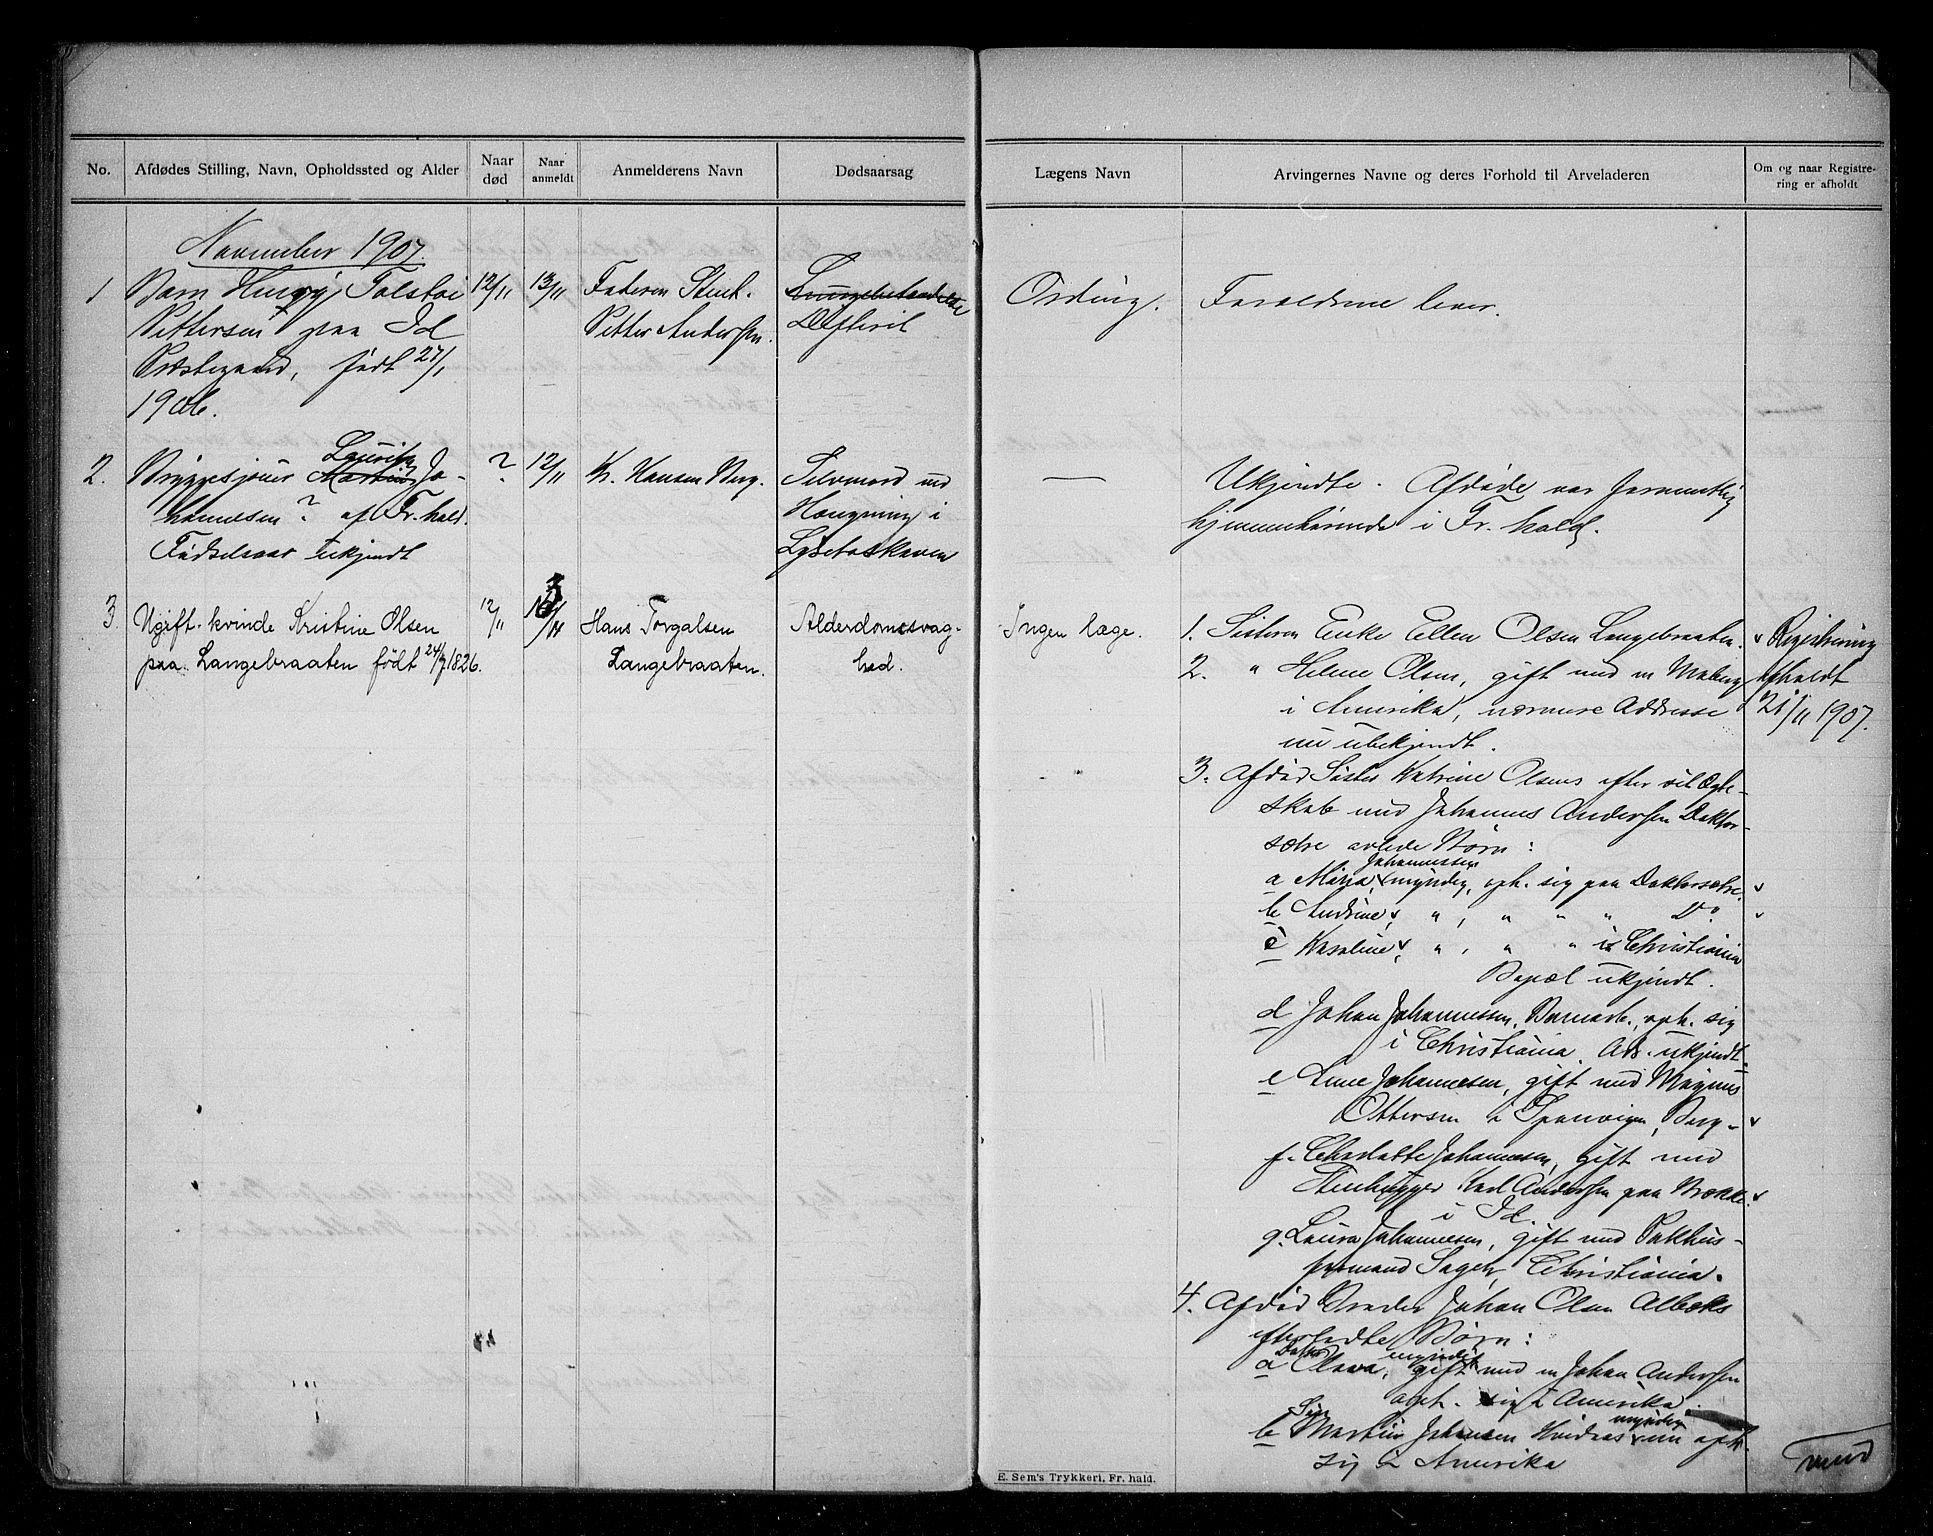 No.
Afdødes Stilling, Navn, Opholdssted og Alder
Naar død
Naar anmeldt
Anmelderens Navn
Dødsaarsag
Lægens Navn
Arvingernes Navne og deres Forhold til Arveladeren
Om og naar Registrering er afholdt
November 1907.
1 Barn Tolstoi 12/11 13/11 Faderen Stenh. Lungebetændelse
Pettersen paa Id Petter Andersen. Difterit
Præstegaard, født 27/1
1906.
Forældrene lever.
2. Bryggesjouer Lauritz Martin Jo- ? 12/11 Kr. Hansen Berg. Selvmord ved
hannesen? af Fr.hald. Hængning i
Fødselsaar ukjendt
—
Ukjendte. Afdøde var
hjemmehørende i Fr.hald.
3. Ugift kvinde Kristine Olsen 12/11 Hans Torgalsen Alderdomssvag-
paa Langebraaten født 24/7 1826. Langebraaten. hed.
Ingen læge.
1. Søsteren Enke Ellen Olsen Langebraaten.
2. " Helene Olsen, gift med en
i Amerika, nærmere Addresse
nu ubekjendt.
3. Afdød Søster Katrine Olsens efter sit Ægte-
skab med Johannes Andersen Doktor-
sætre avlede Børn:
a Maria Johannessen, myndig, oph. sig paa Doktorsætre.
b Andrine, " , " " " Do
c Karoline, " , " " i Christiania
Bopæl ukjendt.
d Johan Johannessen, oph. sig
i Christiania. Ads. ukjendt.
e Anne Johannesen, gift med Magnus
Ottersen i Sponvigen, Berg
f. Charlotte Johannesen, gift med
Stenhugger Karl Andersen paa Brække
i Id
g. Laura Johannesen, gift med Pakhus-
formand Christiania.
4. Afdød Broder Johan Olsen Albæks
efterladte Børn:
a Datter Olava, myndig, gift med en Johan Andersen
oph. sig i Amerika.
b Søn Martin Johansen myndig oph.
sig i Amerika
Registrering
afholdt
21/11 1907.
vend
E. Sem's Trykkeri, Fr. hald.